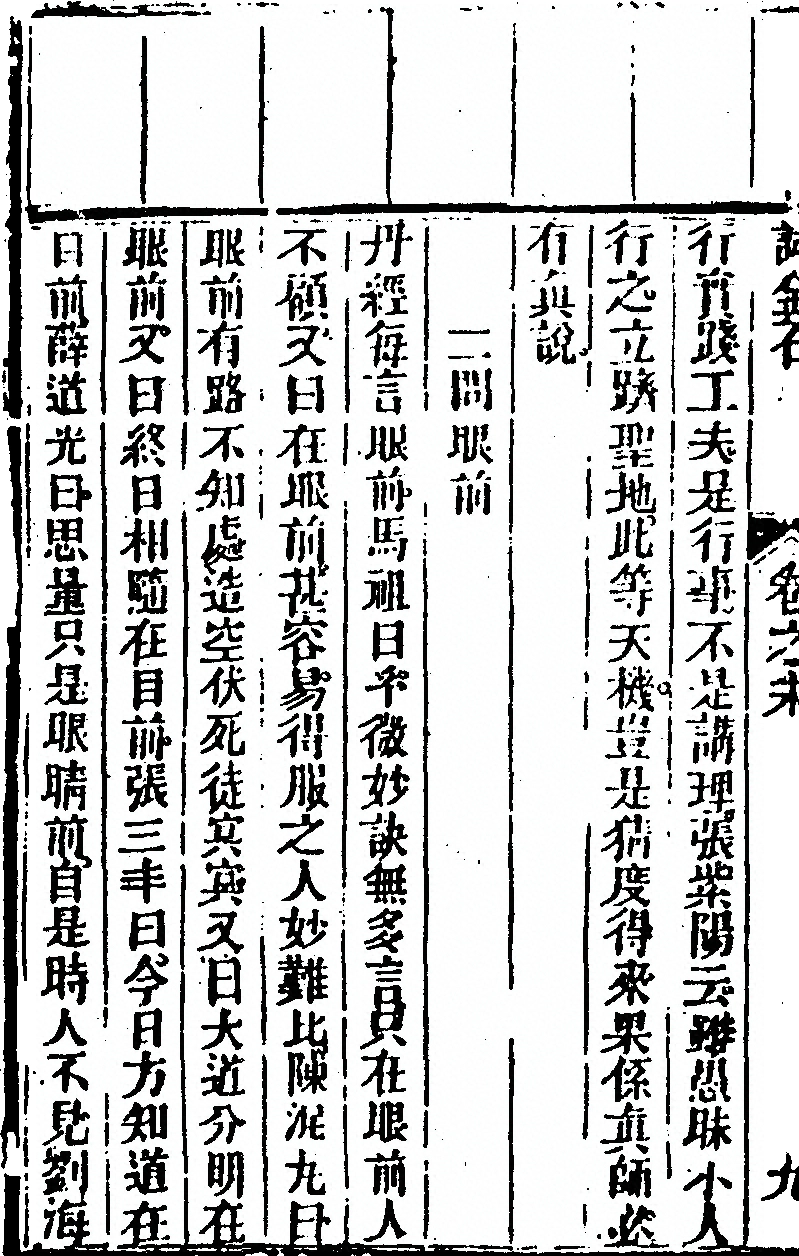 試金石 卷之末 九
行實踐工夫是行事不是講理張紫陽云雖愚昧小人
行之立躋聖地此等天機豈是猜度得來果係真師必
有真說
一問眼前
丹經每言眼前馬祖曰平微妙訣無多言只在眼前人
不顧又曰在眼前甚容易得服之人妙難比陳泥丸曰
眼前有路不知處造空伏死徒冥冥又曰大道分明在
眼前又曰終日相隨在目前張三丰曰今日方知道在
目前薛道光曰思量只是眼睛前自是時人不見劉海